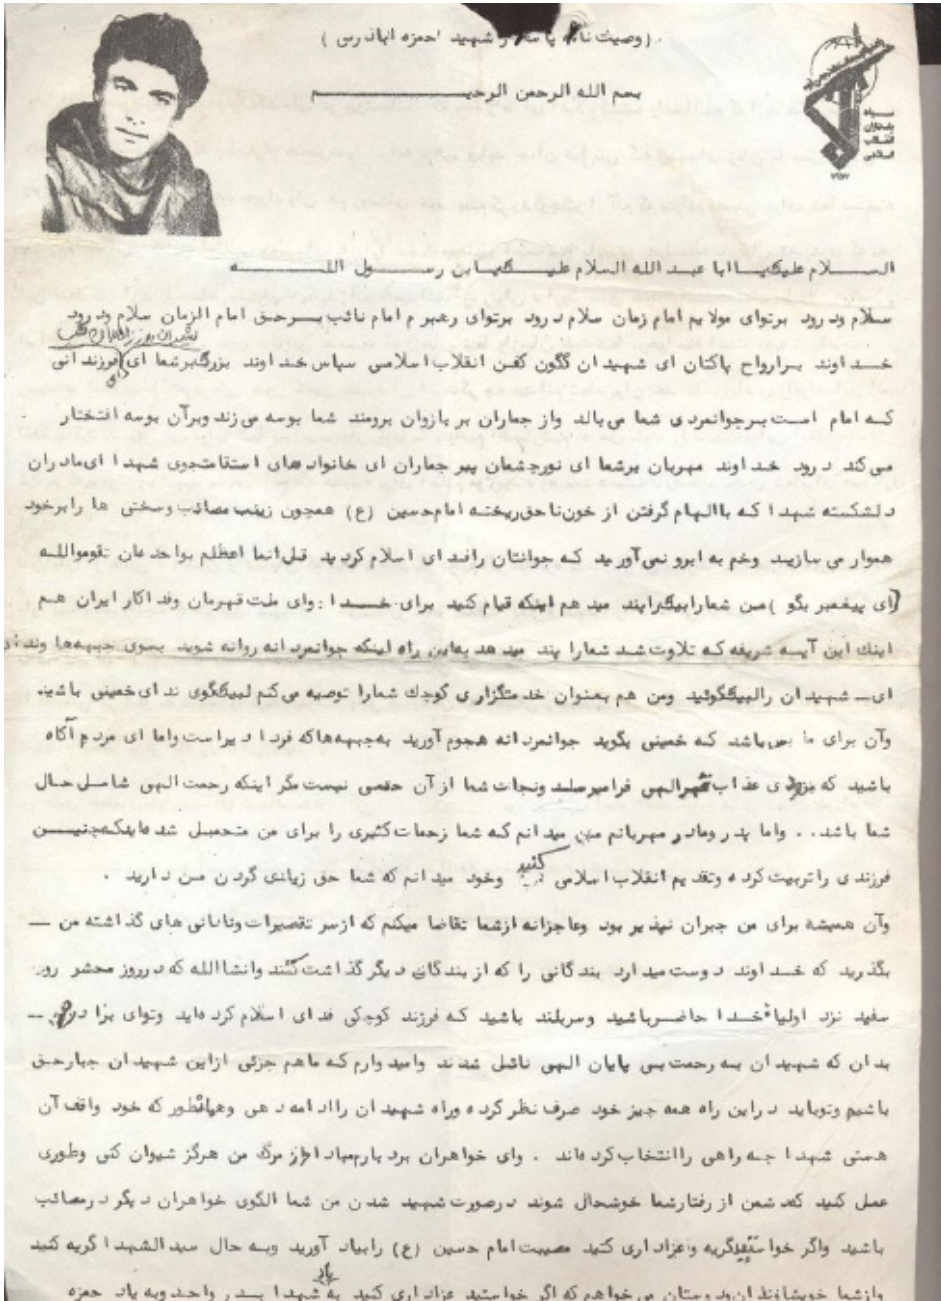 (وصیت نامه پاسدار شهید حمزه اباذری)
بسم الله الرحمن الرحیم
سپاه
پاسداران
انقلاب
اسلامی
السلام علیک یا ابا عبد الله السلام علیک یا بن رسول الله
سلام ودرود برتوای مولایم امام زمان سلام درود برتوای رهبرم امام نائب برحق امام الزمان سلام ودرود
خداوند برارواح پاکتان ای شهیدان گلگون کفن انقلاب اسلامی سپاس خداوند بزرگ برشما ای فرزندانی
که امام است برجوانمردی شما می بالد واز جماران بر بازوان برومند شما بوسه می زند وبرآن بوسه افتختار
می کند درود خداوند مهربان برشما ای نورچشمان پیر جماران ای خانواده های استقامتجوی شهدا ای مادران
دلشکسته شهدا که باالهام گرفتن از خون ناحق ریخته امام حسین (ع) همچون زینب مصائب وسختی ها رابرخود
هموار می سازید وخم به ابرو نمی آورید که جوانتان رافدای اسلام کردید قل انما اعظکم بواحده ان تقوموالله
(ای پیغمبر بگو) من شمارابیک پند مید هم اینکه قیام کنید برای خدا : وای ملت قهرمان وفداکار ایران هم
اینک این آیه شریفه که تلاوت شد شمارا پند مید هد به این راه اینکه جوانمردانه روانه شوید بسوی جبهه ها وندای
ای ـ شهیدان رالبیک گوئید ومن هم بعنوان خدمتگزاری کوچک شمارا توصیه می کنم لبیک گوی ندای خمینی باشید
وآن برای ما بس باشد که خمینی بگوید جوانمردانه هجوم آورید به جبهه ها که فردا دیراست واما ای مردم آگاه
باشید که بزودی عذاب قهرالهی فرامیرسد ونجات شما از آن حتمی نیست مگر اینکه رحمت الهی شامل حال
شما باشد . . واما پدر ومادر مهربانم من میدانم که شما زحمات کثیری را برای من متحمل شده اید که چنین
فرزندی راتربیت کرده وتقدیم انقلاب اسلامی کنید وخود میدانم که شما حق زیادی گردن من دارید .
وآن همیشه برای من جبران نپذیر بود وعاجزانه ازشما تقاضا میکنم که ازسر تقصیرات ونادانی های گذاشته من ـ
بگذرید که خداوند دوست میدارد بندگانی را که از بندگان دیگر گذاشت کنند وانشاالله که درروز محشر رو
سفید نزد اولیاء خدا حاضرباشید وسربلند باشید که فرزند کوچکی فدای اسلام کرده اید وتوای برادرم ـ
بدان که شهیدان به رحمت بی پایان الهی نائل شدند وامیدوارم که ماهم جزئی ازاین شهیدان جبارحق
باشیم وتوباید دراین راه همه چیز خود صرف نظر کرده وراه شهیدان راادامه دهی وهمانطور که خود واقف آن
هستی شهدا چه راهی راانتخاب کرده اند . وای خواهران بردبارم مبادا از مرگ من هرگز شیوان کنی وطوری
عمل کنید که دشمن از رفتارشما خوشحال شوند درصورت شهید شدن من شما الگوی خواهران دیگر درمصائب
باشید واگر خواستید گریه وعزاداری کنید مصیبت امام حسین (ع) رابیاد آورید وبه حال سیدالشهدا گریه کنید
وازشما خویشاوندان ودوستان می خواهم که اگر خواستید عزاداری کنید به یاد شهدا بدر واحد وبه یاد حمزه